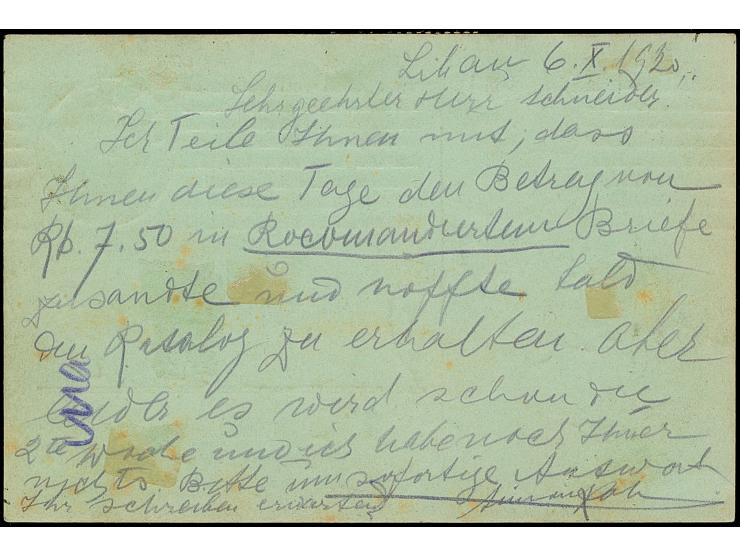 Libau 6.X.1920.
Sehrgeehrter Herr Schneider.
Ich Teile Ihnen mit, dass
Ihnen diese Tage den Betrag von
Rb. 7.50 in Rocomandiertem Briefe
zusandte und hoffte bald
den Katalog zu erhalten aber
leider es wird schon die
2te Woche und ich habe noch Immer
nichts. Bitte um sofortige Antwort
Ihr schreiben erwartend